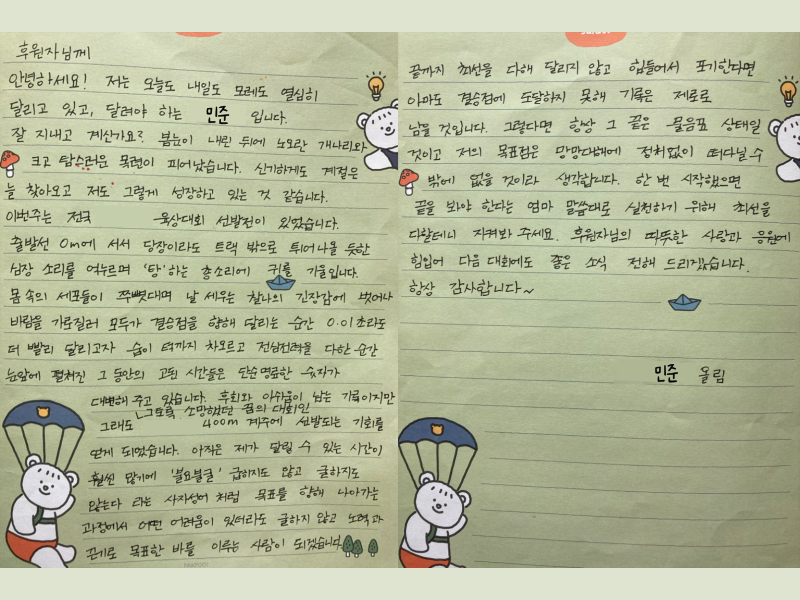 후원자님께
안녕하세요! 저는 오늘도 내일도 모레도 열심히
달리고 있고, 달려야 하는 민준 입니다.
잘 지내고 계신가요? 봄눈이 내린 뒤에 노오란 개나리와
크고 탐스러운 목련이 피어났습니다. 신기하게도 계절은
늘 찾아오고 저도 그렇게 성장하고 있는 것 같습니다.
이번주는 전국 육상대회 선발전이 있었습니다.
출발선 0m에 서서 당장이라도 트랙 밖으로 튀어나올 듯한
심장 소리를 억누르며 '탕'하는 총소리에 귀를 기울입니다.
몸 속의 세포들이 쭈뼛대며 날 세우는 찰나의 긴장감에 벗어나
바람을 가로질러 모두가 결승점을 향해 달리는 순간 0.01초라도
더 빨리 달리고자 숨이 턱까지 차오르고 전심전력을 다한 순간
눈앞에 펼쳐진 그 동안의 고된 시간들은 단순명료한 숫자가
대변해 주고 있습니다. 후회와 아쉬움이 남는 기록이지만
그래도 그토록 소망했던 꿈의 대회인 400m 계주에 선발되는 기회를
얻게 되었습니다. 아직은 제가 달릴 수 있는 시간이
훨씬 많기에 '불요불굴' 급하지도 않고 굴하지도
않는다 라는 사자성어 처럼 목표를 향해 나아가는
과정에서 어떤 어려움이 있더라도 굴하지 않고 노력과
끈기로 목표한 바를 이루는 사람이 되겠습니다.
끝까지 최선을 다해 달리지 않고 힘들어서 포기한다면
아마도 결승점에 도달하지 못해 기록은 제로로
남을 것입니다. 그렇다면 항상 그 끝은 물음표 상태일
것이고 저의 목표점은 망망대해에 정처없이 떠다닐 수
밖에 없을 것이라 생각합니다. 한 번 시작했으면
끝을 봐야 한다는 엄마 말씀대로 실천하기 위해 최선을
다할테니 지켜봐 주세요. 후원자님의 따뜻한 사랑과 응원에
힘입어 다음 대회에도 좋은 소식 전해 드리겠습니다.
항상 감사합니다~
민준 올림